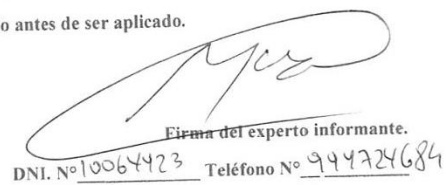 o antes de ser aplicado.
Firma del experto informante.
DNI. Nº 10064423 Teléfono Nº 994724684